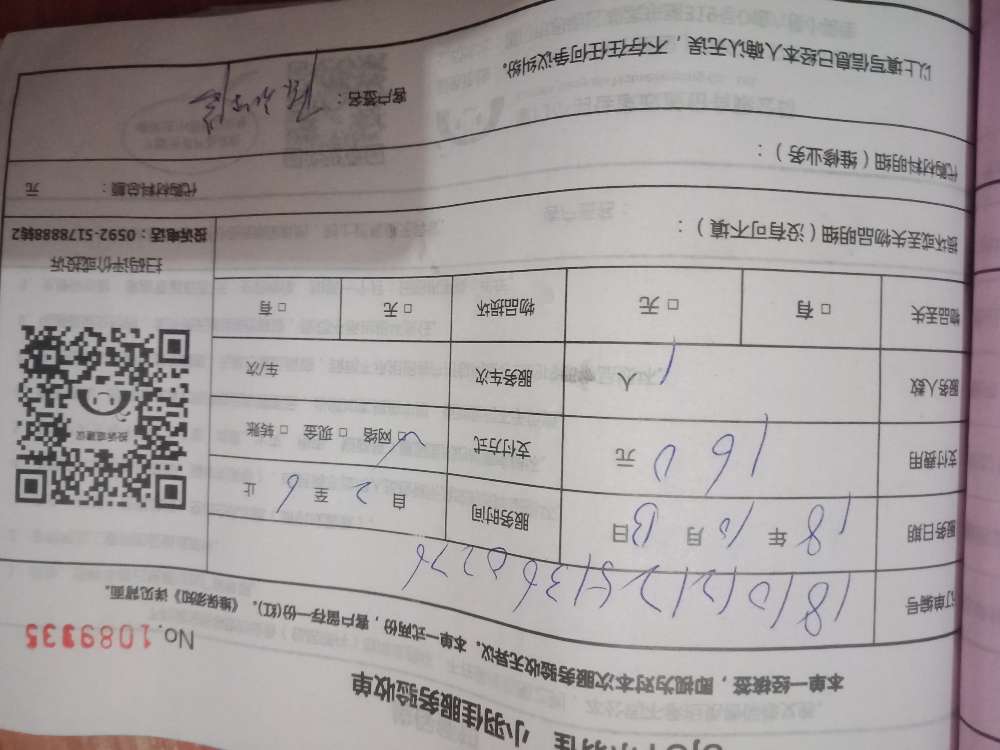 小羽佳服务验收单
No. 1089335
本单一经核签，即视为对本次服务验收无异议。本单一式两份，客户留存一份(红)。《维保须知》详见背面。
订单编号
服务日期 18 年 10 月 13 日 服务时间 自 2 至 6 止
支付费用 160 元 支付方式 □ 网络 □ 现金 □ 转账
服务人数 1 人 服务车次 车/次
物品丢失 □ 有 □ 无 物品损坏 □ 无 □ 有
投诉或建议
扫码评价或投诉
投诉电话：0592-5178888转2
损坏或丢失物品明细（没有可不填）：
代购材料明细（维修业务）：
代购材料总额： 元
以上填写信息已经本人确认无误，不存在任何争议纠纷。
客户签名：